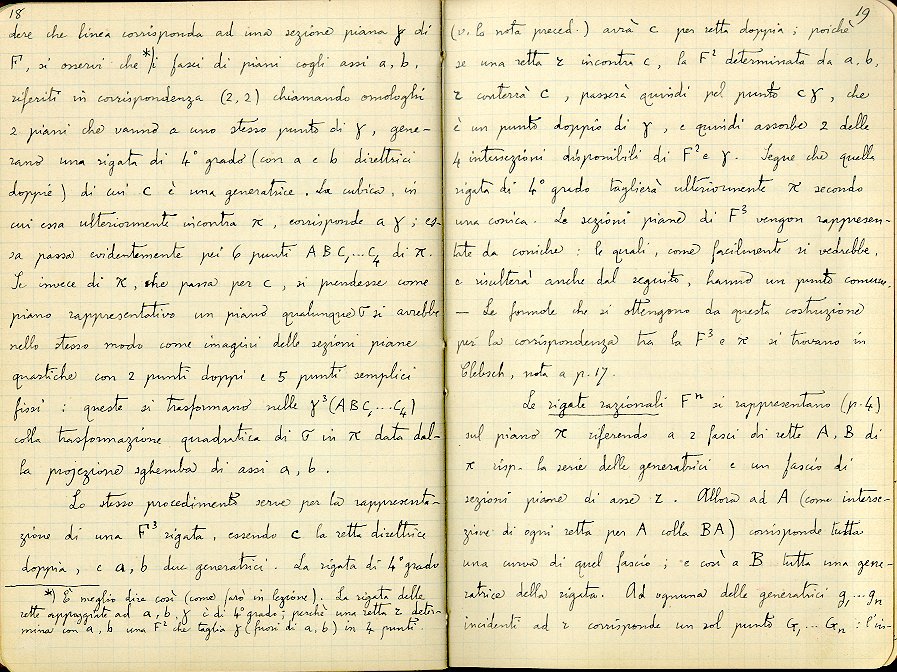 18
dere che linea corrisponda ad una sezione piana γ di
F³, si osservi che *) i fasci di piani cogli assi a, b,
riferiti in corrispondenza (2,2) chiamando omologhi
2 piani che vanno a uno stesso punto di γ, gene-
rano una rigata di 4° grado (con a e b direttrici
doppie) di cui c è una generatrice. La cubica, in
cui essa ulteriormente incontra π, corrisponde a γ; es-
sa passa evidentemente pei 6 punti A B C₁...C₄ di π.
Se invece di π, che passa per c, si prendesse come
piano rappresentativo un piano qualunque σ si avrebbe
nello stesso modo come imagini delle sezioni piane
quartiche con 2 punti doppi e 5 punti semplici
fissi: queste si trasformano nelle γ³(ABC₁...C₄)
colla trasformazione quadratica di σ in π data dal-
la projezione sghemba di assi a, b.
Lo stesso procedimento serve per la rappresenta-
zione di una F³ rigata, essendo c la retta direttrice
doppia, e a, b due generatrici. La rigata di 4° grado
*) È meglio dire così (come farò in lezione). La rigata delle
rette appoggiate ad a, b, γ è di 4° grado; perchè una retta r deter-
mina con a, b una F² che taglia γ (fuori di a, b) in 4 punti.
19
(v. la nota preced.) avrà c per retta doppia; poichè
se una retta r incontra c, la F² determinata da a, b,
r conterrà c, passerà quindi pel punto cγ, che
è un punto doppio di γ, e quindi assorbe 2 delle
4 intersezioni disponibili di F² e γ. Segue che quella
rigata di 4° grado taglierà ulteriormente π secondo
una conica. Le sezioni piane di F³ vengon rappresen-
tate da coniche: le quali, come facilmente si vedrebbe,
e risulterà anche dal seguito, hanno un punto comune.
— Le formole che si ottengono da questa costruzione
per la corrispondenza tra la F³ e π si trovano in
Clebsch, nota a p. 17.
Le rigate razionali Fⁿ si rappresentano (p. 4)
sul piano π riferendo a 2 fasci di rette A, B di
π risp. la serie delle generatrici e un fascio di
sezioni piane di asse r. Allora ad A (come interse-
zione di ogni retta per A colla BA) corrisponde tutta
una curva di quel fascio; e così a B tutta una gene-
ratrice della rigata. Ad ognuna delle generatrici g₁...gₙ
incidenti ad r corrisponde un sol punto G₁...Gₙ: l'in-